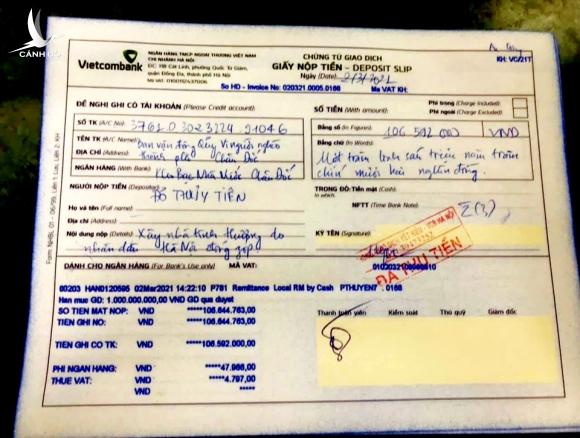 CÁNH CÒ
Vietcombank
NGÂN HÀNG TMCP NGOẠI THƯƠNG VIỆT NAM
CHI NHÁNH HÀ NỘI
ĐC: 11B Cát Linh, phường Quốc Tử Giám,
quận Đống Đa, thành phố Hà Nội
CHỨNG TỪ GIAO DỊCH
GIẤY NỘP TIỀN - DEPOSIT SLIP
Ngày (Date): 2/3/2021
KH: VC/21T
So HD - Invoice No: 020321.0005.0168 Ma VAT KH:
ĐỀ NGHỊ GHI CÓ TÀI KHOẢN (Please Credit account):
SỐ TIỀN (With amount):
Phí trong (Charge Included)
Phí ngoài (Charge Excluded)
SỐ TK (A/C No): 3761 0 3023224 91046
TÊN TK (A/C Name): Ban vận động Quỹ Vì người nghèo
ĐỊA CHỈ (Address): thành phố Châu Đốc
NGÂN HÀNG (With Bank): Kho Bạc Nhà Nước Châu Đốc
Bằng số (In Figures): 106 592 000 VND
Bằng chữ (In Words):
Một trăm linh sáu triệu năm trăm
chín mươi hai nghìn đồng.
NGƯỜI NỘP TIỀN (Depositor)
Họ và tên (Full name): ĐỖ THỦY TIÊN
Địa chỉ (Address)
Nội dung nộp (Details): Xây nhà tình thương do
nhân dân Hà Nội đóng góp.
TRONG ĐÓ: Tiền mặt (Cash)
NFTT (Non Term Bank Note)
KÝ TÊN (Signature)
ĐÃ THU TIỀN
DÀNH CHO NGÂN HÀNG (For Bank's Use only) MÃ VAT:
60203 HAND120595 02Mar2021 14:22:10 P781 Remittance Local RM by Cash PTHUYEN7 0168
Han muc GD: 1.000.000.000,00 VND GD qua duyet
SO TIEN MAT NOP: VND *****106.644.763,00
TIEN GHI NO: VND *****106.644.763,00
TIEN GHI CO TK: VND *****106.592.000,00
PHI NGAN HANG: VND *****47.966,00
THUE VAT: VND *****4.797,00
VND *****
Thanh toán viên Kiểm soát Thủ quỹ Giám đốc